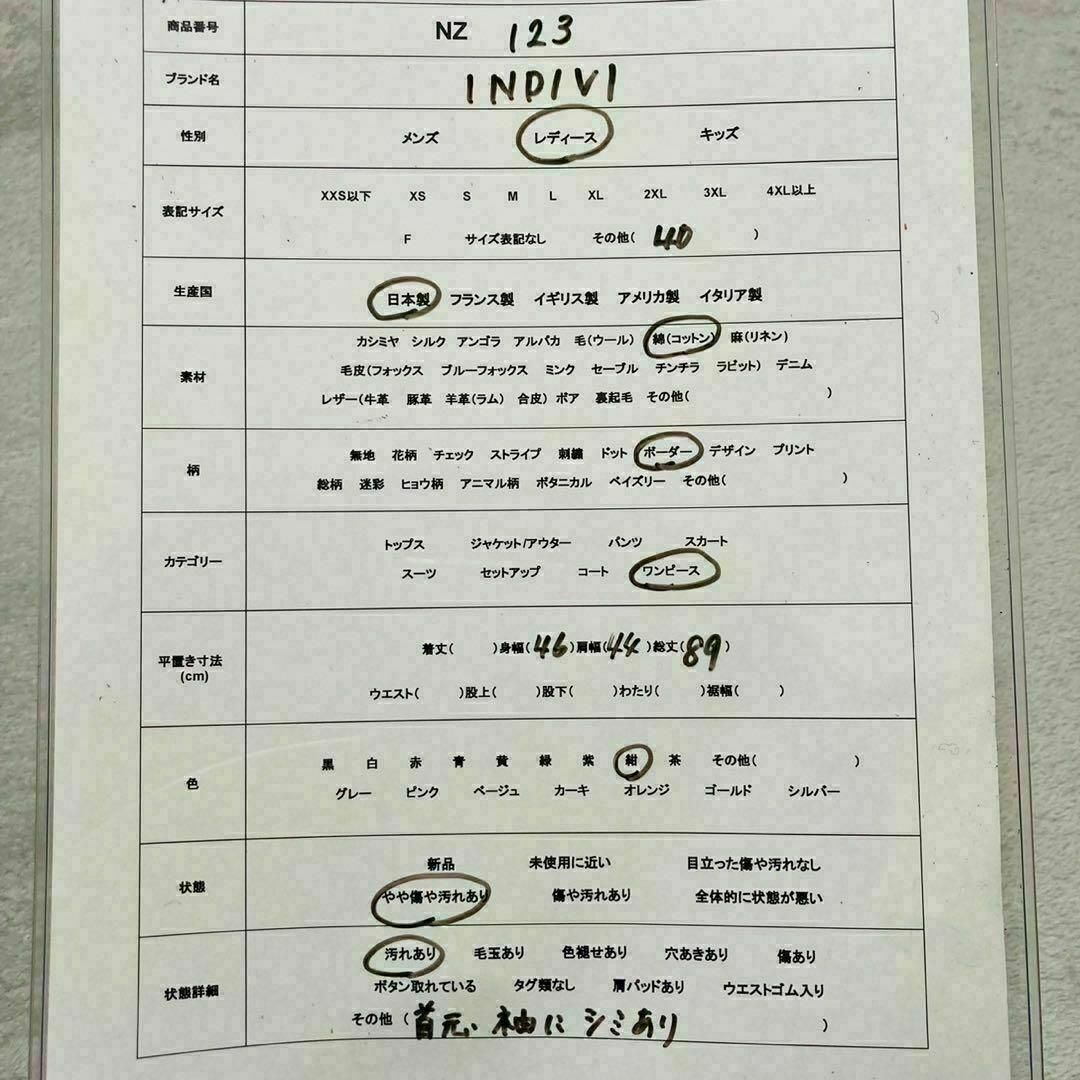 商品番号 NZ 123
ブランド名 INDIVI
性別 メンズ レディース キッズ
XXS以下 XS S M L XL 2XL 3XL 4XL以上
表記サイズ
F サイズ表記なし その他( 40 )
生産国 日本製 フランス製 イギリス製 アメリカ製 イタリア製
カシミヤ シルク アンゴラ アルパカ 毛(ウール) 綿(コットン) 麻(リネン)
素材 毛皮(フォックス ブルーフォックス ミンク セーブル チンチラ ラビット) デニム
レザー(牛革 豚革 羊革(ラム) 合皮) ボア 裏起毛 その他( )
柄 無地 花柄 チェック ストライプ 刺繍 ドット ボーダー デザイン プリント
総柄 迷彩 ヒョウ柄 アニマル柄 ボタニカル ペイズリー その他( )
トップス ジャケット/アウター パンツ スカート
カテゴリー
スーツ セットアップ コート ワンピース
着丈( )身幅(46)肩幅(44)総丈(89)
平置き寸法
(cm)
ウエスト( )股上( )股下( )わたり( )裾幅( )
黒 白 赤 青 黄 緑 紫 紺 茶 その他( )
色
グレー ピンク ベージュ カーキ オレンジ ゴールド シルバー
新品 未使用に近い 目立った傷や汚れなし
状態
やや傷や汚れあり 傷や汚れあり 全体的に状態が悪い
汚れあり 毛玉あり 色褪せあり 穴あきあり 傷あり
状態詳細 ボタン取れている タグ類なし 肩パッドあり ウエストゴム入り
その他 (首元、袖にシミあり )